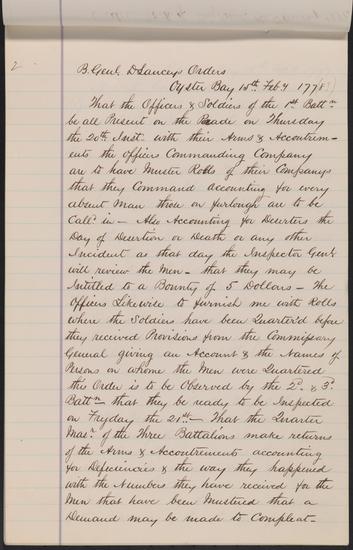 2
B. Genl. DLanceys Orders
Oyster Bay 15th. Feby 1778
That the Officers & Soldiers of the 1st Battn
be all Present on the Parade on Thursday
the 20th Inst. with their Arms & Accoutrem-
ents the officers Commanding Company
are to have Muster Rolls of their Companys
that they Command accounting for every
absent Man those on furlough are to be
Calld in — Also Accounting for Deserters the
Day of Desertion or Death or any other
Incident as that day the Inspector Genl.
will review the Men — that they may be
Intitled to a Bounty of 5 Dollars — The
Officers Likewise to furnish me with Rolls
where the Soldiers have been Quarter'd before
they received Provisions from the Commissary
General giving an Account & the Names of
Persons on whome the Men were Quartered
this Order is to be Observed by the 2d. & 3d.
Battn — that they be ready to be Inspected
on Fryday the 21st — That the Quarter
Masr. of the Three Battalions make returns
of the Arms & Accoutrements accounting
for Deficiencies & the way they happened
with the Numbers they have received for the
Men that have been Mustered that a
Demand may be made to Compleat —